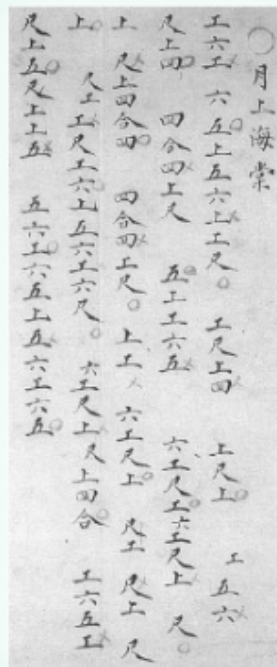 〇月上海棠
工六工 六五上五六上工尺 工尺上四 上尺上 工五六
尺上四 四合四上尺 五工工六五 六工尺工六工尺上 尺
上 尺上四合四 四合四工尺 上工 六工尺上 尺工 尺上 尺
上 尺工工尺工六上五六工六尺 六工尺上尺上四合 工六五工
尺上五尺上上五 五六工六五上五六工六五